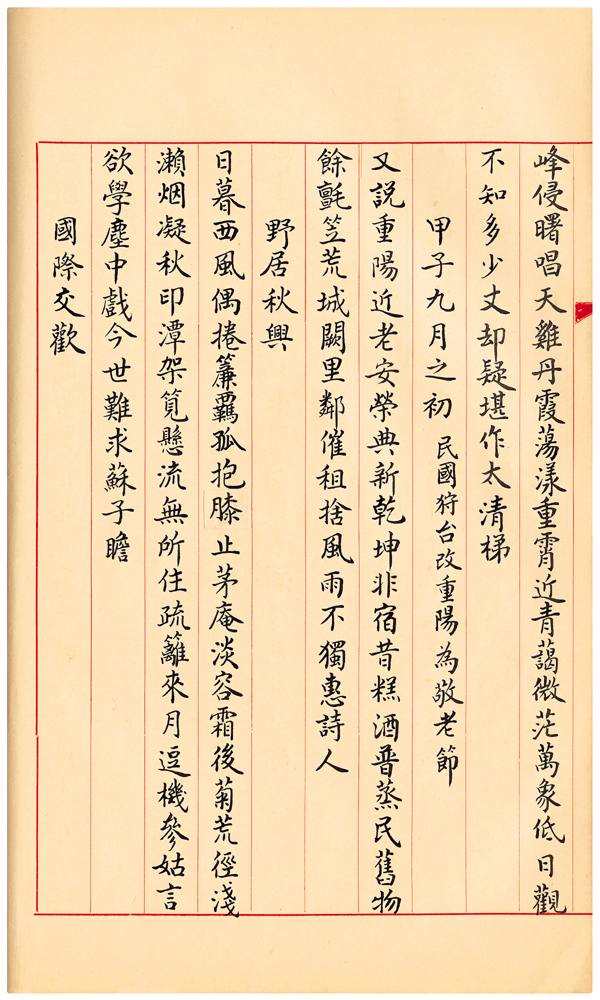 峰侵曙唱天雞丹霞蕩漾重霄近青藹微茫萬象低日觀
不知多少丈却疑堪作太清梯
甲子九月之初 民國狩台改重陽為敬老節
又説重陽近老安榮典新乾坤非宿昔糕酒普蒸民舊物
餘氈笠荒城闕里鄰催租捨風雨不獨惠詩人
野居秋興
日暮西風偶捲簾覊孤抱膝止茅庵淡容霜後菊荒徑淺
瀨烟凝秋印潭架筧懸流無所住疏籬來月逗機參姑言
欲學塵中戲今世難求蘇子瞻
國際交歡